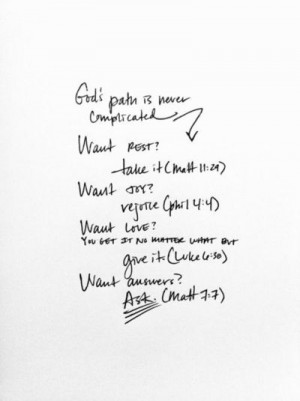 God's path is never
complicated
Want REST?
take it (Matt 11:29)
Want JOY?
rejoice (phil 4:4)
Want LOVE?
YOU GET IT NO MATTER WHAT BUT
give it (Luke 6:30)
Want answers?
ASK. (Matt 7:7)